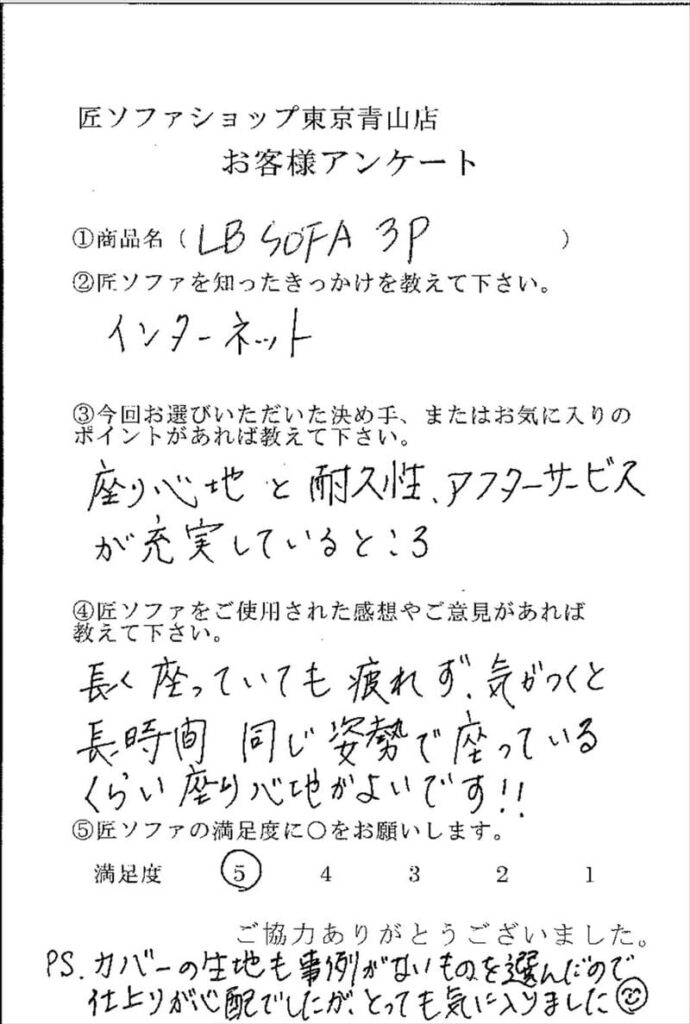 匠ソファショップ東京青山店
お客様アンケート
①商品名（LB SOFA 3P）
②匠ソファを知ったきっかけを教えて下さい。
インターネット
③今回お選びいただいた決め手、またはお気に入りの
ポイントがあれば教えて下さい。
座り心地と耐久性、アフターサービス
が充実しているところ
④匠ソファをご使用された感想やご意見があれば
教えて下さい。
長く座っていても疲れず、気がつくと
長時間同じ姿勢で座っている
くらい座り心地がよいです!!
⑤匠ソファの満足度に〇をお願いします。
満足度 5 4 3 2 1
ご協力ありがとうございました。
PS.カバーの生地も事例がないものを選んだので
仕上りが心配でしたが、とっても気に入りました